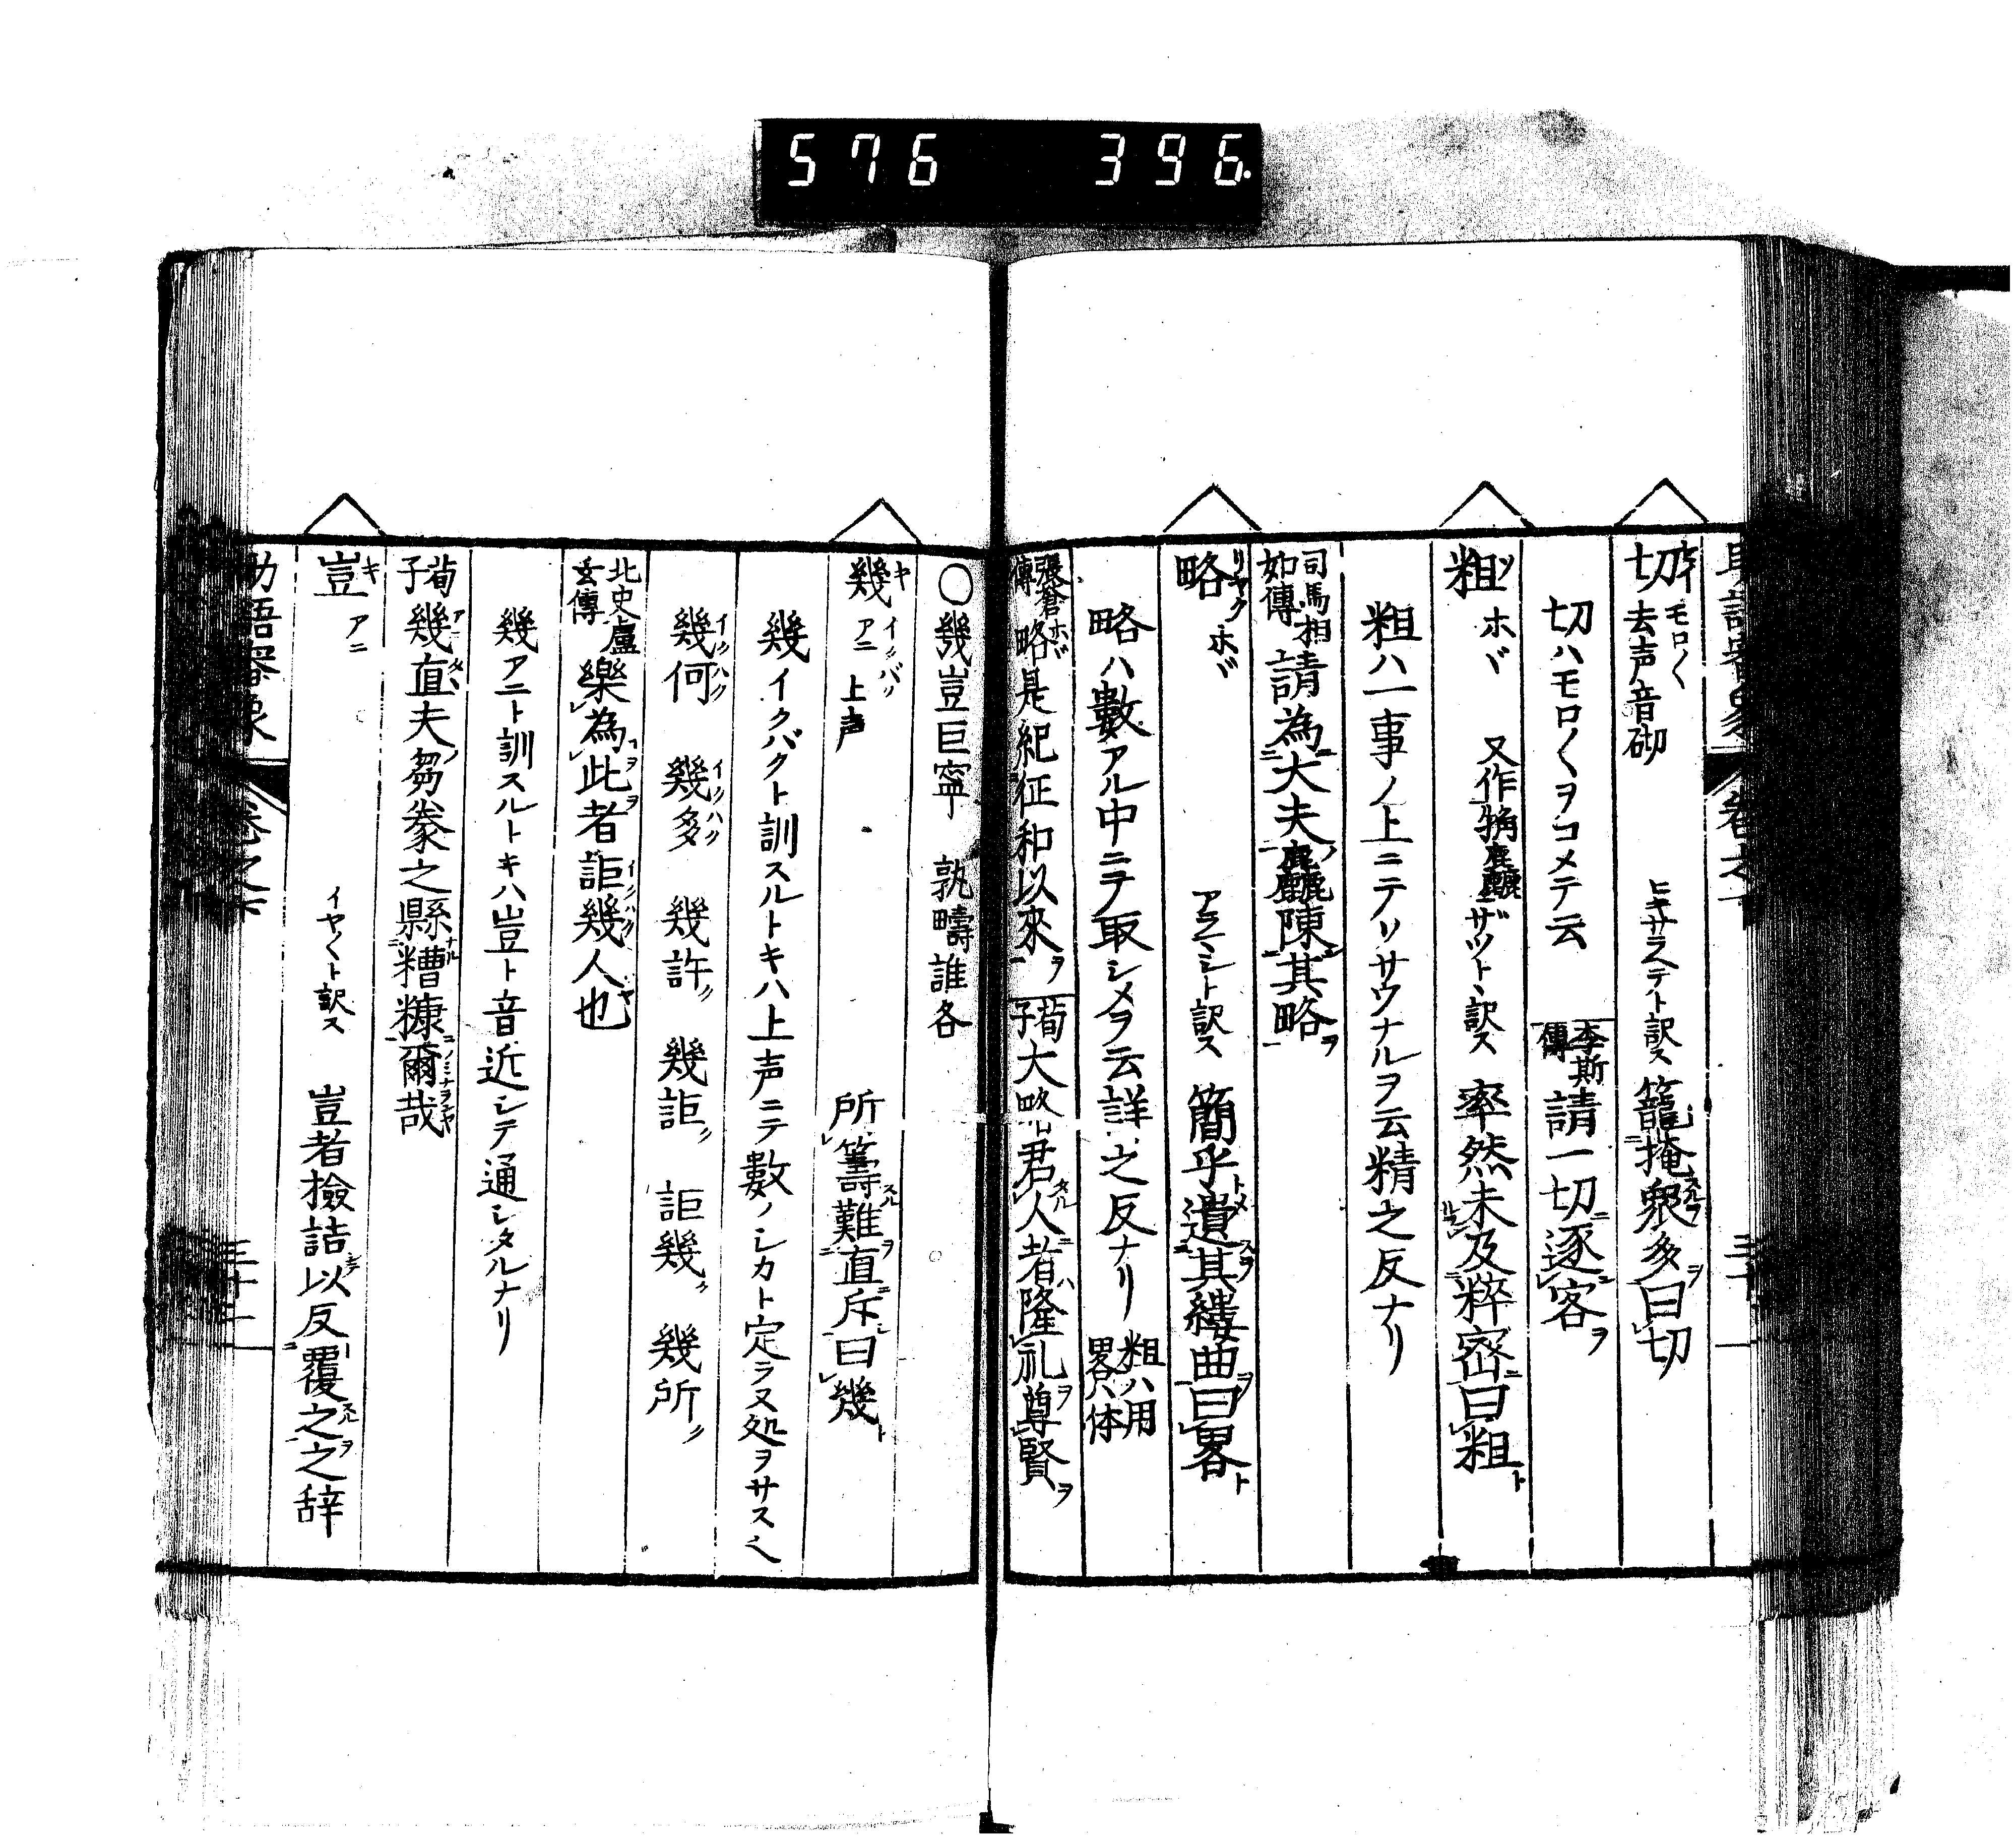 576 396.
切 モロ〱 去声音砌 ヒキサラヘテト訳ス 籠掩衆多曰切
切ハモロ〱ヲコメテ云 李斯傳 請一切逐客
粗 ソ ホヾ 又作觕麤 ザツト訳ス 率然未及粹密曰粗
粗ハ一事ノ上ニテソサウナルヲ云精之反ナリ
司馬相如傳 請為大夫麤陳其略
略 リヤク ホヾ アラマシト訳ス 簡乎遺其縷曲曰畧
略ハ數アル中ニテ取シメヲ云詳之反ナリ 粗ハ用畧ハ体
張蒼傳 略是紀征和以來 荀子 大略君人者隆礼尊賢
〇幾豈巨寧 孰疇誰各
幾 キ アニ 上声 所籌難直斥曰幾
幾イクバクト訓スルトキハ上声ニテ數ノシカト定ラヌ処ヲサスヘ
幾何 幾多 幾許 幾詎 詎幾 幾所
北史盧玄傳 樂為此者詎幾人也
幾アニト訓スルトキハ豈ト音近シテ通シタルナリ
荀子 幾直夫芻豢之縣糟糠爾哉
豈 キ アニ イヤ〱ト訳ス 豈者撿詰以反覆之之辞
助語審象 卷之下 三十二